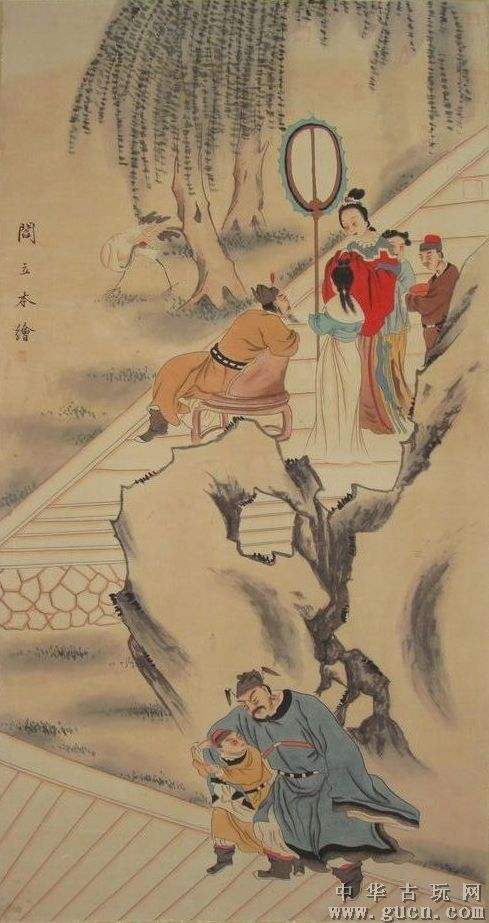 閻立本繪
中华古玩网
www.gucn.com